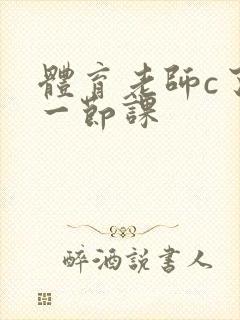 體育老師c了
一節課
醉酒說書人